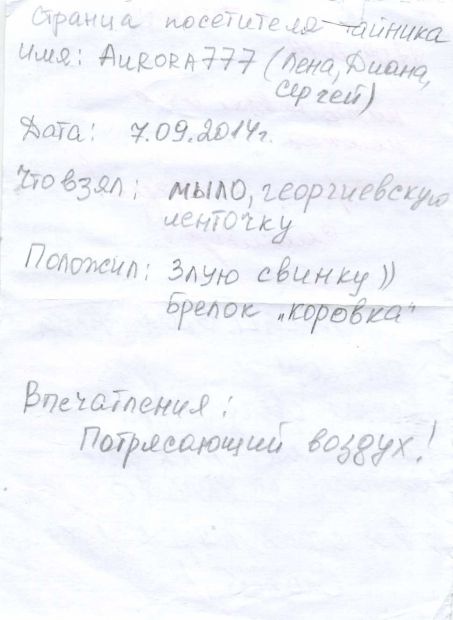 Странца посетителя тайника
Имя: AURORA777 (Лена, Диана,
Сергей)
Дата: 7.09.2014г.
Что взял: мыло, георгиевскую
ленточку
Положил: Злую свинку))
Брелок „коровка“
Впечатления:
Потрясающий воздух!